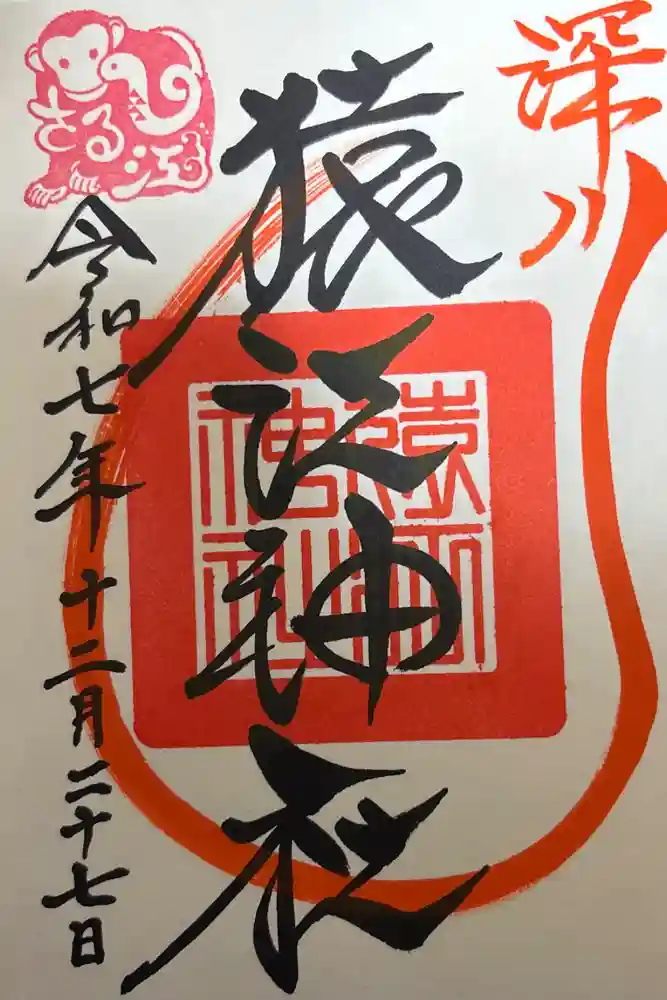 深川
猿江神社
さる江
令和七年十二月二十七日